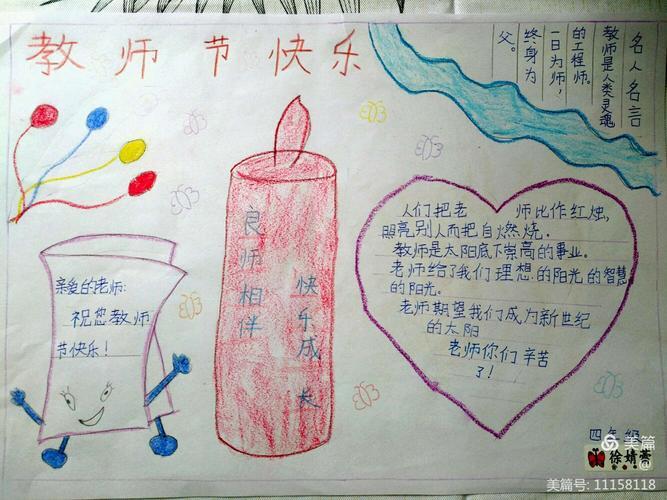 教师节快乐
名人名言
教师是人类灵魂
的工程师。
一日为师，
终身为
父。
亲爱的老师：
祝您教师
节快乐！
良师相伴
快乐成长
人们把老 师比作红烛，
照亮别人而把自燃烧。
教师是太阳底下崇高的事业。
老师给了我们理想的阳光的智慧
的阳光。
老师期望我们成为新世纪
的太阳
老师你们辛苦
了！
四年级
徐婧萱
美篇
@
美篇号: 11158118